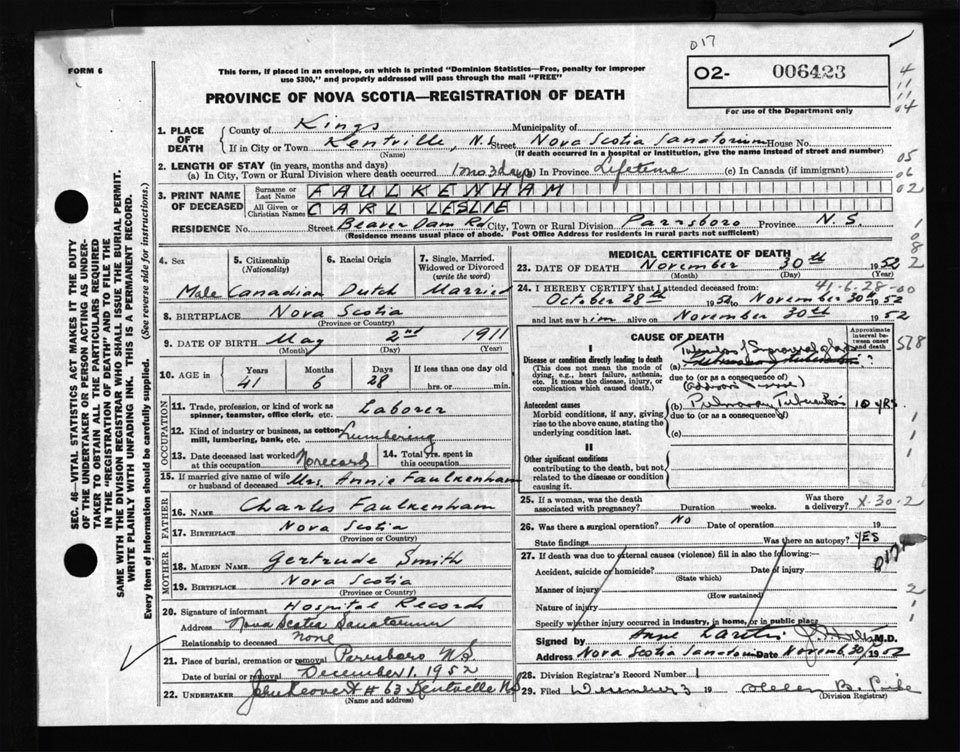 017
FORM 6
This form, if placed in an envelope, on which is printed "Dominion Statistics—Free, penalty for improper
use $300," and properly addressed will pass through the mail "FREE"
O2- 006423
For use of the Department only
PROVINCE OF NOVA SCOTIA—REGISTRATION OF DEATH
1. PLACE OF DEATH
County of Kings Municipality of
If in City or Town Kentville, N.S. Street Nova Scotia Sanatorium House No.
(Name) (If death occurred in a hospital or institution, give the name instead of street and number)
2. LENGTH OF STAY (in years, months and days)
(a) In City, Town or Rural Division where death occurred 1 mo 3 days (b) In Province Lifetime (c) In Canada (if immigrant)
3. PRINT NAME OF DECEASED
Surname or Last Name FAULKENHAM
All Given or Christian Names CARL LESLIE
RESIDENCE No. Street Beaver Dam Rd City, Town or Rural Division Parrsboro Province N.S.
(Residence means usual place of abode. Post Office Address for residents in rural parts not sufficient)
4. Sex 5. Citizenship (Nationality) 6. Racial Origin 7. Single, Married, Widowed or Divorced (write the word)
Male Canadian Dutch Married
8. BIRTHPLACE Nova Scotia
(Province or Country)
9. DATE OF BIRTH May 2nd 1911
(Month) (Day) (Year)
10. AGE in Years Months Days If less than one day old
41 6 28 hrs. or min.
OCCUPATION
11. Trade, profession, or kind of work as spinner, teamster, office clerk, etc. Laborer
12. Kind of industry or business, as cotton-mill, lumbering, bank, etc. Lumbering
13. Date deceased last worked at this occupation No record 14. Total yrs. spent in this occupation
15. If married give name of wife or husband of deceased Mrs. Annie Faulkenham
FATHER
16. Name Charles Faulkenham
17. BIRTHPLACE Nova Scotia
(Province or Country)
MOTHER
18. MAIDEN NAME Gertrude Smith
19. BIRTHPLACE Nova Scotia
(Province or Country)
20. Signature of informant Hospital Records
Address Nova Scotia Sanatorium
Relationship to deceased None
21. Place of burial, cremation or removal Parrsboro N.S.
Date of burial or removal December 1, 1952
22. UNDERTAKER # 63 Kentville N.S.
(Name and address)
MEDICAL CERTIFICATE OF DEATH
23. DATE OF DEATH November 30th 1952
(Month) (Day) (Year)
24. I HEREBY CERTIFY that I attended deceased from: 41-6-28-00
October 28th 1952 to November 30th 1952
and last saw him alive on November 30th 1952
CAUSE OF DEATH
Approximate interval between onset and death
I
Disease or condition directly leading to death
(This does not mean the mode of dying, e.g., heart failure, asthenia, etc. It means the disease, injury, or complication which caused death.)
due to (or as a consequence of)
Antecedent causes
Morbid conditions, if any, giving rise to the above cause, stating the underlying condition last.
(b) Pulmonary Tuberculosis 10 yrs
due to (or as a consequence of)
(c)
II
Other significant conditions
contributing to the death, but not related to the disease or condition causing it.
25. If a woman, was the death associated with pregnancy? Duration weeks. Was there a delivery? X-30-2
26. Was there surgical operation? No Date of operation 19
State findings Was there an autopsy? YES
27. If death was due to external causes (violence) fill in also the following:—
Accident, suicide or homicide? Date of injury
(State which)
Manner of injury
(How sustained)
Nature of injury
Specify whether injury occurred in industry, in home, or in public place
Signed by M.D.
Address Nova Scotia Sanatorium Date Novem 30/1952
28. Division Registrar's Record Number 1
29. Filed December 3 19 Helen B.
(Division Registrar)
SEC. 46—VITAL STATISTICS ACT MAKES IT THE DUTY
OF THE UNDERTAKER OR PERSON ACTING AS UNDER-
TAKER TO OBTAIN ALL THE PARTICULARS REQUIRED
IN THE "REGISTRATION OF DEATH" AND TO FILE THE
SAME WITH THE DIVISION REGISTRAR WHO SHALL ISSUE THE BURIAL PERMIT.
WRITE PLAINLY WITH UNFADING INK. THIS IS A PERMANENT RECORD.
Every item of information should be carefully supplied. (See reverse side for instructions.)
4
11
11
04
05
06
02
1
08
2
568
1
1
1
017
2
1